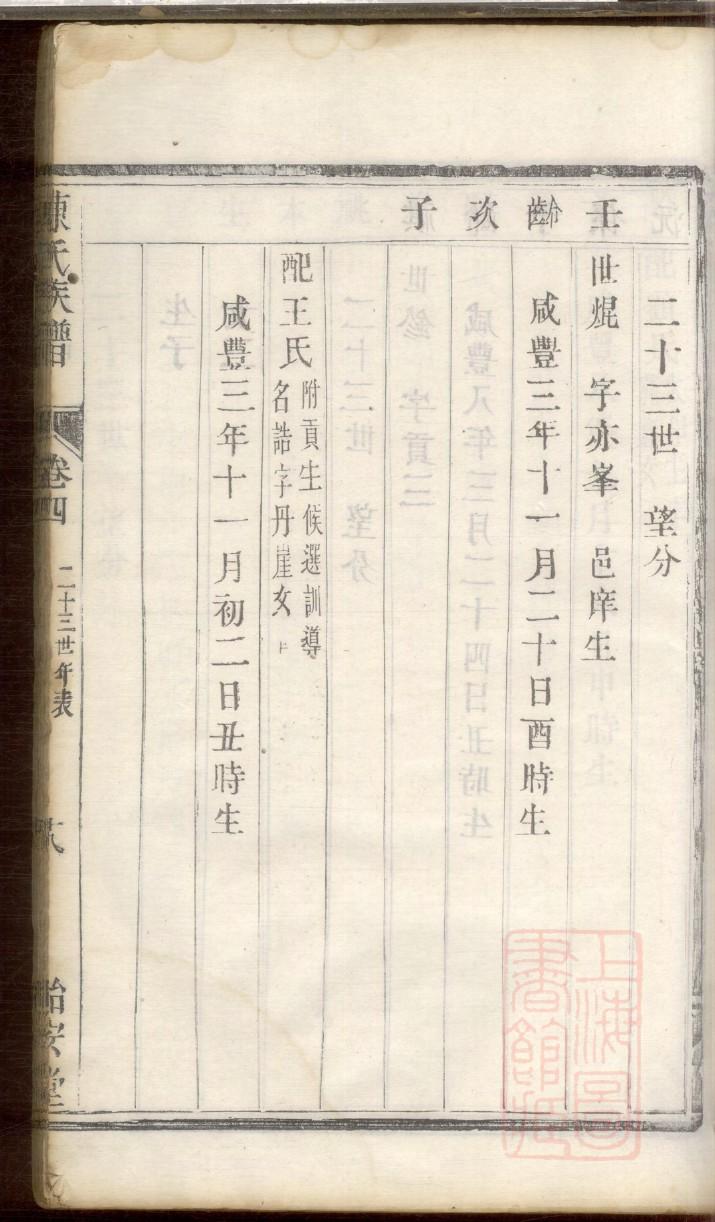 二十三世 望分
壬齡次子
世焜 字亦峯 邑庠生
咸豐三年十一月二十日酉時生
配王氏 附貢生候選訓導
名誥字丹崖女
咸豐三年十一月初二日丑時生
陳氏族譜 卷四 二十三世年表 怡安堂
上海圖
書館藏